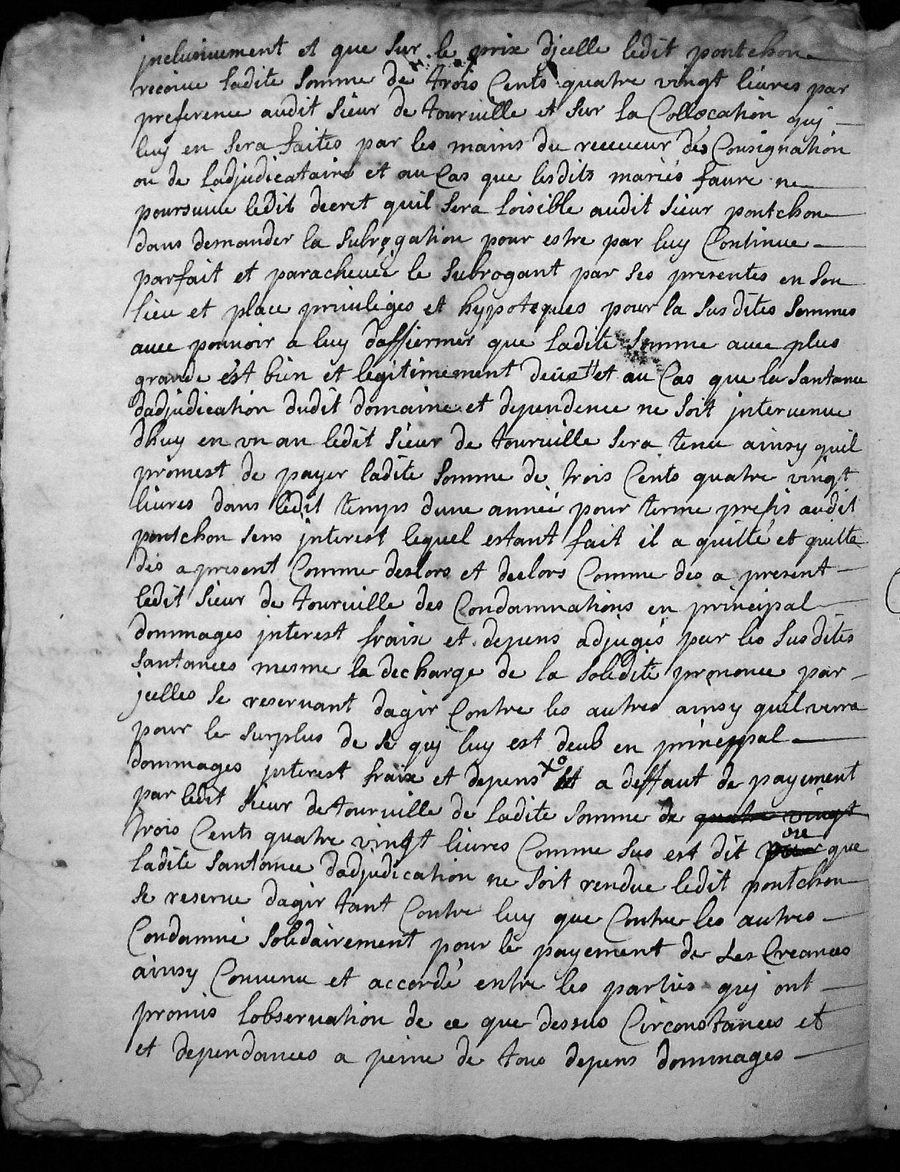 jnclusiuement et que sur le prix djcelle ledit pontchon
recoiue ladite somme de trois Cents quatre vingt liures par
preference audit sieur de tourville et sur la Collocation quj
luy en sera faites par les mains du receueur des Consignation
ou de ladjudicataire et au Cas que lesdits mariés faure ne
poursuiue ledit decret quil sera loisible audit sieur pontchon
dans demander la subrogation pour estre par luy Continue
parfait et paracheuée le subrogant par ses presentes en son
lieu et place priuileges et hypoteques pour la susdites sommes
auec pouuoir a luy daffiermer que ladite somme auec plus
grande est bien et legitimement deüe et au Cas que la santance
dadjudication dudit domaine et dependence ne soit jnteruenue
dhuy en vn an ledit sieur de tourville sera tenu ainsy quil
promest de payer ladite somme de trois Cents quatre vingt
liures dans ledit temps dune année pour terme prefis audit
pontchon sens jnterest lequel estant fait il a quitté et quitte
dés a present Comme deslors et deslors Comme des a present
ledit sieur de tourville des Condamnations en principal
dommages jnterest fraix et depens adjugés par les susdites
santances mesme la decharge de la solidité prononce par
jcelles se reseruant dagir Contre les autres ainsy quil verra
pour le surplus de se quj luy est deub en princippal
dommages jnterest fraix et depens et a deffaut de payement
par ledit sieur de tourville de ladite somme de quatre vingt
trois Cents quatre vingt liures Comme sus est dit ou que
ladite santance dadjudication ne soit rendue ledit pontchon
se reserue dagir tant Contre luy que Contre les autres
Condamné solidairement pour le payement de ses Creances
ainsy Conuenu et accordé entre les parties quj ont
promis lobseruation de ce que dessus Circonstances et
et dependances a peine de tous depens dommages